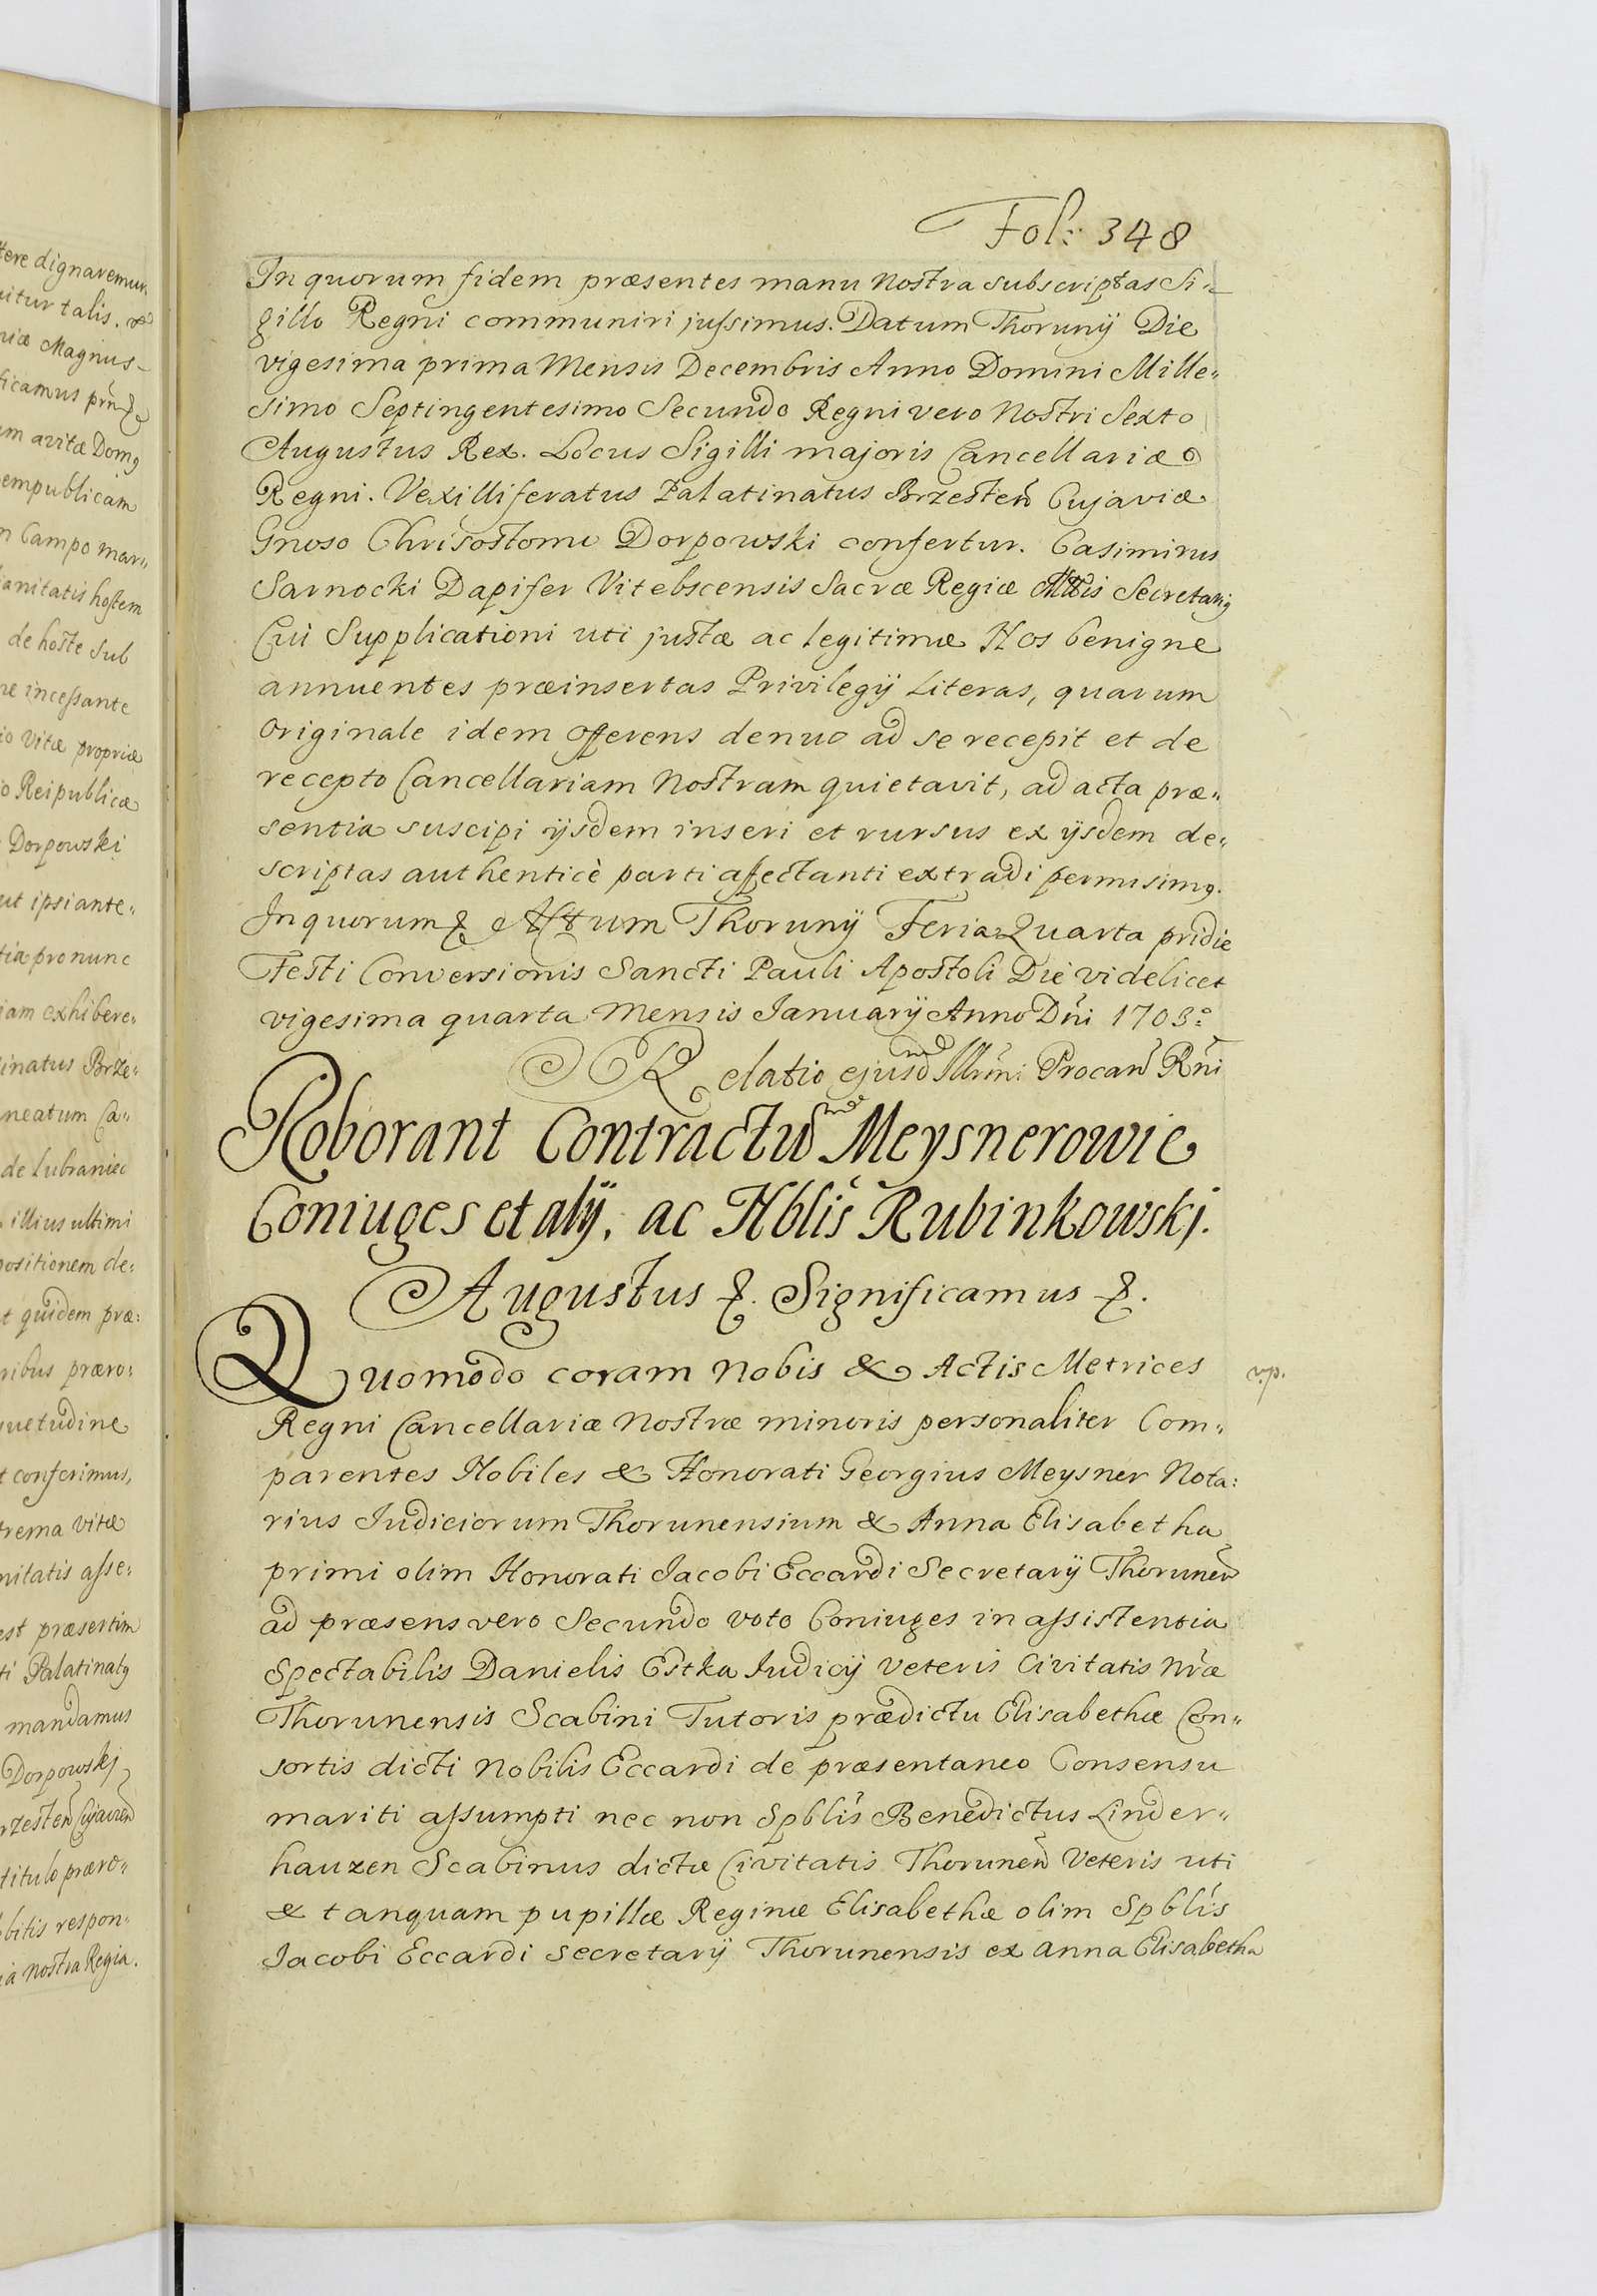 tere dignaremur
uitur talis.
niæ Magnus
ficamus
um avitæ Domg
empublicam
n Campo mar„
anitatis hostem
de hoste Sub
ne incessante
io vitæ propriæ
o Reipublicæ
Dorpowski
ut ipsi ante„
tia pro nunc
iam exhibere„
inatus Brze„
neatum Ca„
de Lubraniec
illius ultimi
positionem de:
t quidem præ:
ribus præro:
uetudine
t conferimus,
trema vitæ
nitatis asse:
est præsertim
ti Palatinatg
mandamus
Dorpowskj
rzesteñ Cujavieñ
titulo præro„
bitis respon„
ia nostra Regia.
Fol: 348
In quorum fidem præsentes manu Nostra subscriptas Si„
gillo Regni communiri jussimus. Datum Thorunÿ Die
vigesima prima Mensis Decembris Anno Domini Mille„
simo Septingentesimo Secundo Regni vero Nostri Sexto
Augustus Rex. Locus Sigilli majoris Cancellariæ
Regni. Vexilliferatus Palatinatus Brzesteñ Cujaviæ
Gnoso Chrisostomo Dorpowski confertur. Casimirus
Sarnocki Dapifer Vitebscensis Sacræ Regiæ Mttis Secretarig
Cui Supplicationi uti justæ ac legitimæ Nos benigne
annuentes præinsertas Privilegÿ Literas, quarum
Originale idem Offerens denuo ad se recepit et de
recepto Cancellariam Nostram quietavit, ad acta præ„
sentia suscipi ÿsdem inseri et rursus ex ÿsdem de„
scriptas authenticè parti affectanti extradi permisimg.
In quorum &. Actum Thorunÿ Feria Quarta pridie
Festi Conversionis Sancti Pauli Apostoli Die videlicet
vigesima quarta Mensis Januarÿ Anno Dñi 1703.º
Relatio ejusd Illrmi Procañ Rñi
Roborant Contractũ Meysnerowie
Coniuges et alÿ, ac Nblis Rubinkowskj.
Augustus &. Significamus &.
Quomodo coram Nobis & Actis Metrices
v.p.
Regni Cancellariæ Nostræ minoris personaliter Com„
parentes Nobiles & Honorati Georgius Meysner Nota:
rius Judiciorum Thorunensium & Anna Elisabetha
primi olim Honorati Jacobi Eccardi Secretarÿ Thoruneñ
ad præsens vero Secundo voto Coniuges in assistentia
Spectabilis Danielis Estka Judicÿ Veteris Civitatis Nræ
Thorunensis Scabini Tutoris prædictæ Elisabethæ Con„
sortis dicti Nobilis Eccardi de præsentaneo Consensu
mariti assumpti nec non Spblis Benedictus Linder„
hauzen Scabinus dictæ Civitatis Thoruneñ Veteris uti
& tanquam pupillæ Reginæ Elisabethæ olim Spblis
Jacobi Eccardi Secretarÿ Thorunensis ex Anna Elisabetha